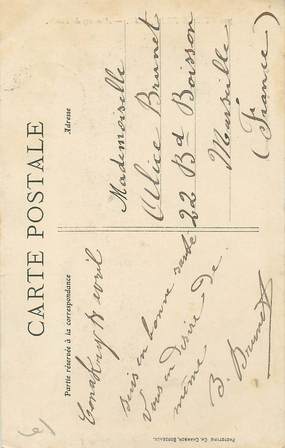 CARTE POSTALE
Partie réservée à la correspondance
Adresse
Conakry 18 avril
suis en bonne santé
Vous en désire de
même
B. Brunet
Mademoiselle
Alice Brunet
22 Bd Boisson
Marseille
(France)
Phototypie Ch. Chambon, Bordeaux.